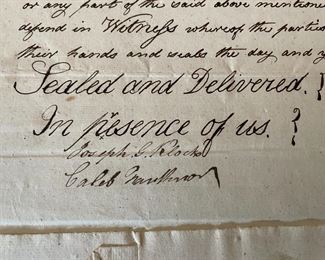 or any part of the said above mentione
defend in Witness whereof the parties
their hands and seals the day and y
Sealed and Delivered. }
In presence of us. }
Joseph G. Klock
Caleb